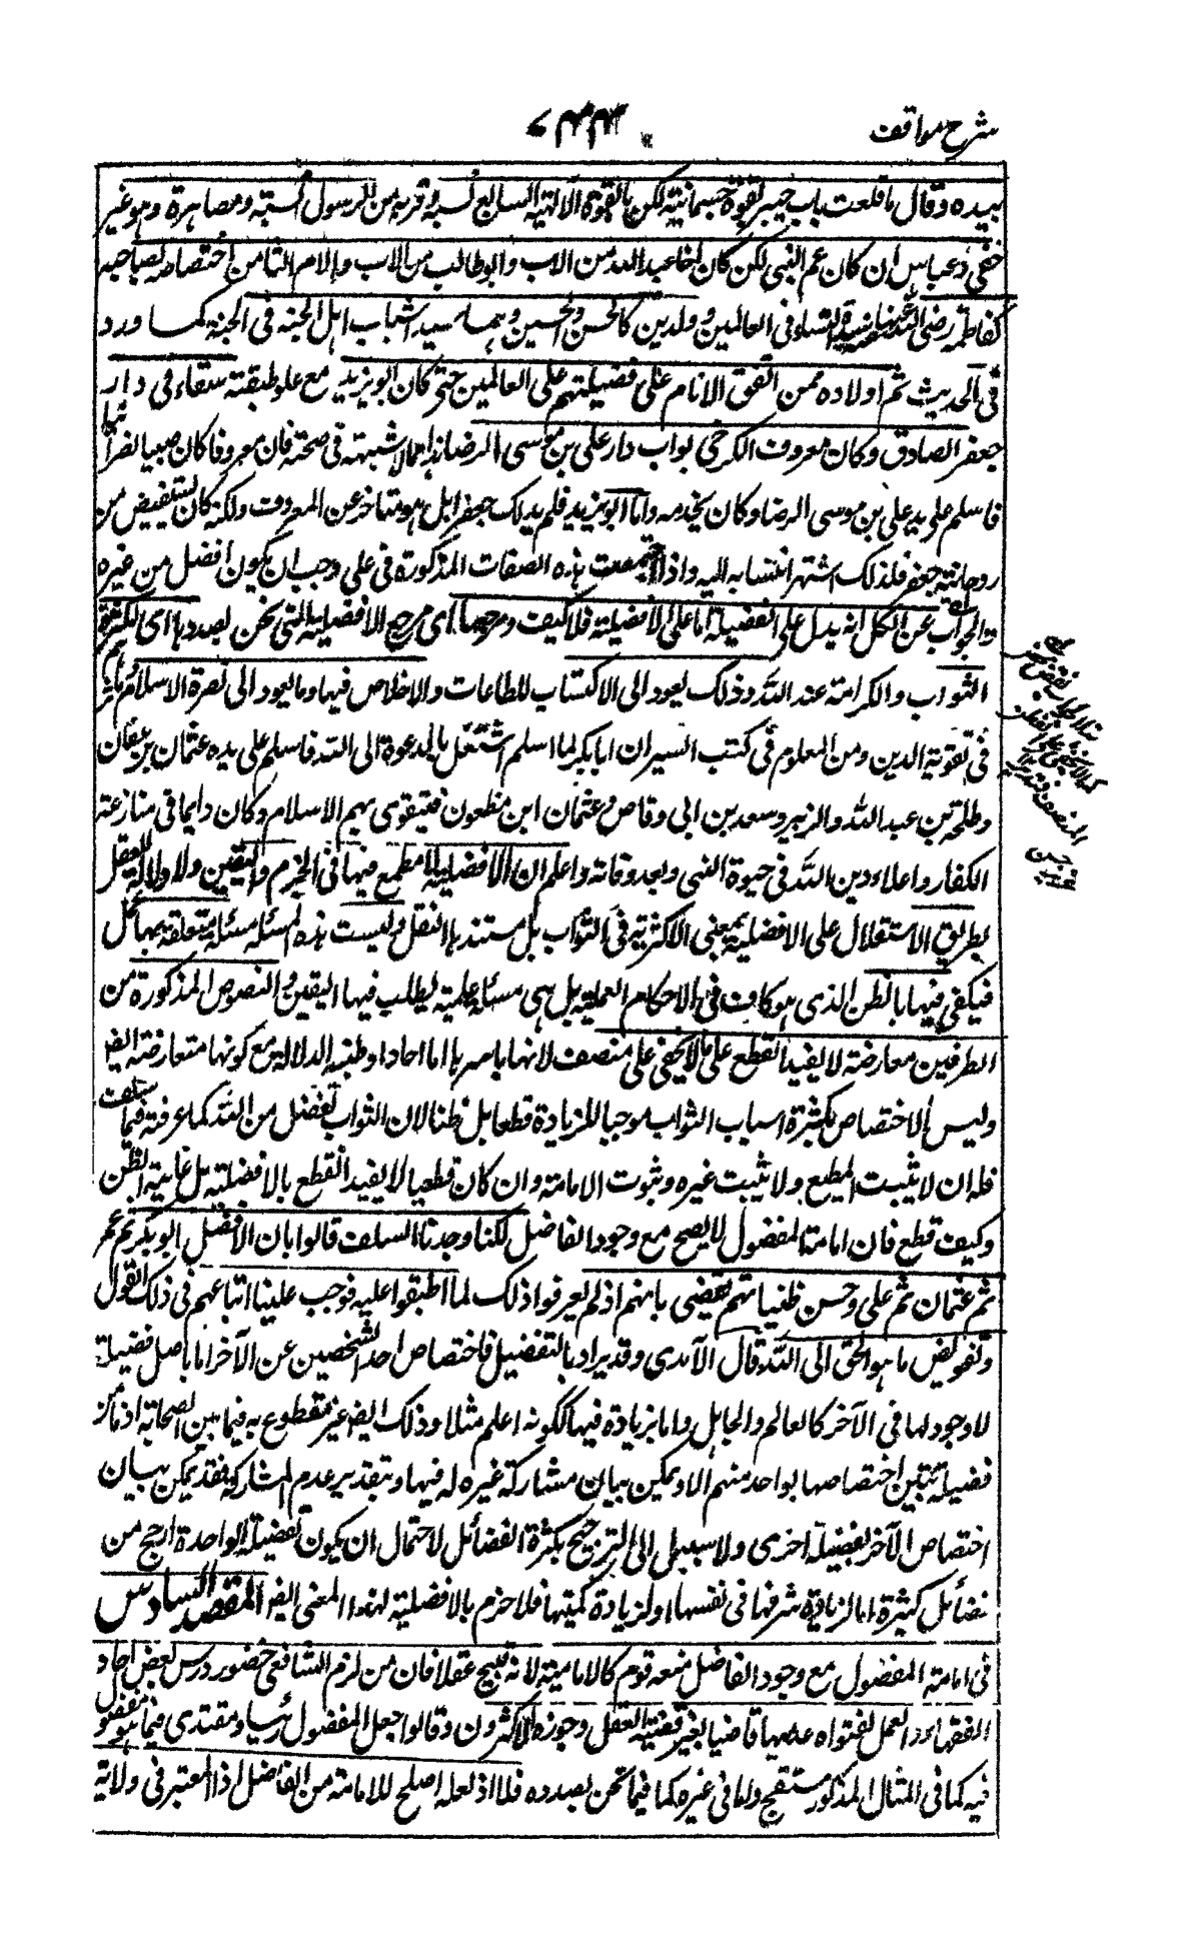 شرح مواقف
٧٤٤
بيده وقال ما قلعت باب خيبر بقوة جسمانية لكن بالقوة الالهية السابع نسبه وقربه من الرسول نسبة ومصاهرة وهو غير
خفي وعباس ان كان عم النبي لكن كان اخا عبد الله من الاب وابو طالب من الاب والام الثامن اختصاصه بصاحبة
كفاطمة رضى الله عنها سيدة النساء فى العالمين وولدين كالحسن والحسين وهما سيدا شباب اهل الجنة فى الجنة كما ورد
فى الحديث ثم اولاده ممن اتفق الانام على فضيلتهم على العالمين حتى كان ابو يزيد مع علو طبقته سقاء فى دار
جعفر الصادق وكان معروف الكرخى بواب دار على بن موسى الرضا هذا مما لا شبهة فى صحته فان معروفا كان صبيا نصرانيا
فاسلم على يد على بن موسى الرضا وكان يخدمه واما ابو يزيد فلم يدرك جعفرا بل هو متاخر عن المعروف ولكنه كان يستفيض من
روحانية جعفر فلذلك اشتهر انتسابه اليه واذا اجتمعت هذه الصفات المذكورة فى على وجب ان يكون افضل من غيره
والجواب عن الكل انه يدل على الفضيلة اما على الافضلية فلا كيف ومرجعها اى مرجع الافضلية التى نحن بصددها اى الكثرة
الثواب والكرامة عند الله وذلك يعود الى الاكتساب للطاعات والاخلاص فيها وما يعود الى نصرة الاسلام ومآثرهم
فى تقوية الدين ومن المعلوم فى كتب السير ان ابا بكر لما اسلم اشتغل بالدعوة الى الله فاسلم على يده عثمان بن عفان
وطلحة بن عبد الله والزبير وسعد بن ابى وقاص وعثمان ابن مظعون فيتقوى بهم الاسلام وكان دايما فى منازعة
الكفار واعلاء دين الله فى حيوة النبى وبعد وفاته واعلم ان الافضلية لا مطمع فيها فى الجزم واليقين ولا دلالة للعقل
بطريق الاستقلال على الافضلية بمعنى الاكثرية فى الثواب بل مستندها النقل وليست هذه المسئلة مسئلة متعلقة بها عمل
فيكفى فيها بالظن الذى هو كاف فى الاحكام العملية بل هى مسئلة علمية يطلب فيها اليقين والنصوص المذكورة من
الطرفين معارضة لا يفيد القطع على ما لا يخفى على منصف لانها باسرها اما احاد او ظنية الدلالة مع كونها متعارضة ايضا
وليس الاختصاص بكثرة اسباب الثواب موجبا للزيادة قطعا بل ظنا لان الثواب تفضل من الله كما عرفته فيما سلف
فله ان لا يثيب المطيع ولا يثيب غيره وثبوت الامامة وان كان قطعيا لا يفيد القطع بالافضلية بل غاية الظن
وكيف قطع فان امامة المفضول لا يصح مع وجود الفاضل لكنا وجدنا السلف قالوا بان الافضل ابو بكر ثم عمر
ثم عثمان ثم على وحسن ظننا بهم يقضى بانهم اذ لم يعرفوا ذلك لما اطبقوا عليه فوجب علينا اتباعهم فى ذلك القول
وتفويض ما هو الحق الى الله قال الآمدى وقد يراد بالتفضيل فاختصاص احد الشخصين عن الآخر اما باصل فضيلة
لا وجود لها فى الآخر كالعالم والجاهل واما بزيادة فيها ككونه اعلم مثلا وذلك ايضا غير مقطوع به فيما بين الصحابة اذ ما من
فضيلة تبين اختصاصها بواحد منهم الا ويمكن بيان مشاركة غيره له فيها وبتقدير عدم المشاركة فقد يمكن بيان
اختصاص الآخر بفضيلة اخرى ولا سبيل الى الترجيح بكثرة الفضائل لاحتمال ان يكون الفضيلة الواحدة ارجح من
فضائل كثيرة اما لزيادة شرفها فى نفسها او لزيادة كميتها فلا جزم بالافضلية لهذا المعنى ايضا المقصد السادس
فى امامة المفضول مع وجود الفاضل منعه قوم كالامامية لانه قبيح عقلا فان من لزم الشافعى حضور درس بعض احاد
الفقهاء والعمل بفتواه عد سفيها قاضيا بغير قضية العقل وجوزه الاكثرون وقالوا جعل المفضول رئيسا ومقتدى فيما هو مفضول
فيه كما فى المثال المذكور مستقبح واما فى غيره كما فيما نحن بصدده فلا اذ لعله اصلح للامامة من الفاضل اذ المعتبر فى ولاية